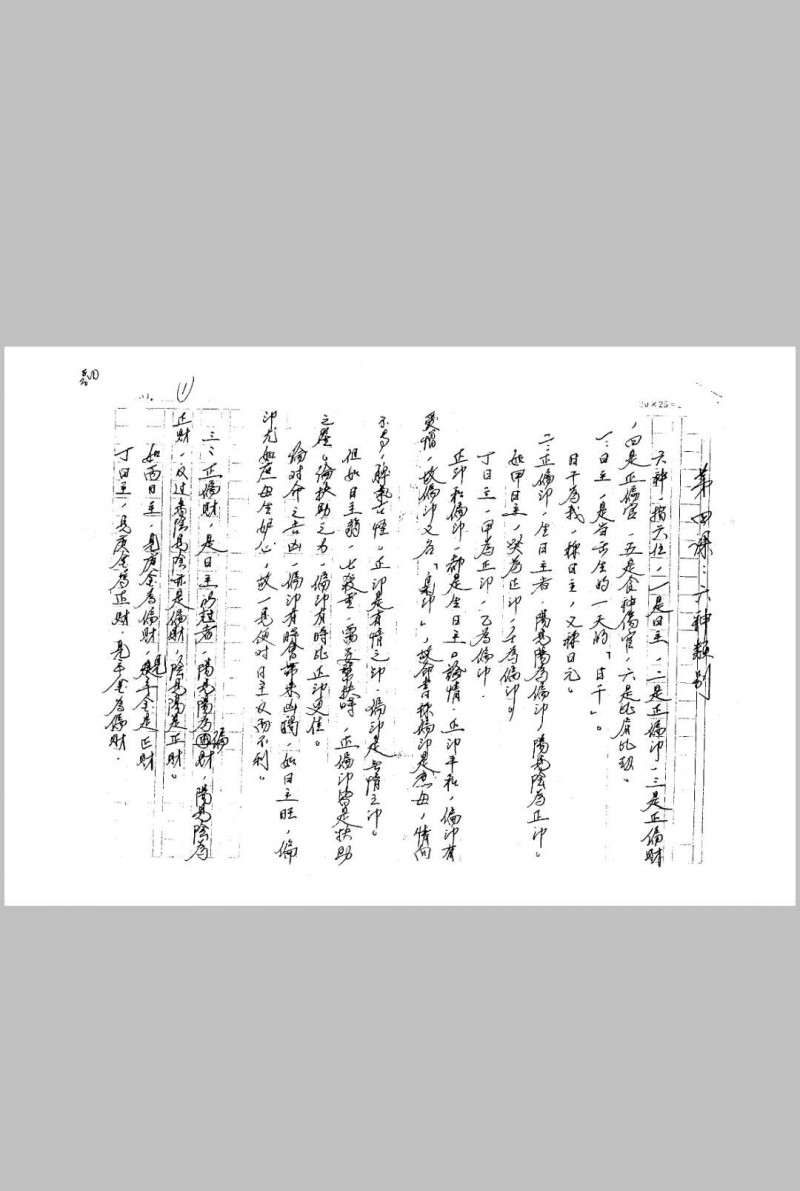 第四課：六神類別
六神，指六位，一是日主，二是正偏印，三是正偏財
，四是正偏官，五是食神傷官，六是比肩比劫。
一：日主，是自己生的一天的「日干」。
日干為我，稱日主，又稱日元。
二：正偏印，生日主者，陽見陽為偏印，陽見陰為正印。
如甲日主，癸為正印，壬為偏印。
丁日主，甲為正印，乙為偏印。
正印和偏印，都是生日主。論情，正印平和，偏印有
愛憎，故偏印又名「梟印」，故命書稱偏印是惡母，情向
不專，正印是有情之印，偏印是無情之印。
但如日主弱，七殺重，需要幫扶時，正偏印皆是扶助
之璽。論扶助之力，偏印有時比正印更佳。
論對命之吉凶，偏印有時會帶來凶禍，如日主旺，偏
印尤如庶母生妒心，故一見便對日主反而不利。
三：正偏財，是日主的剋者，陽見陽為偏財，陽見陰為
正財，反過來陰見陰亦是偏財，陰見陽是正財。
如丙日主，見庚金為偏財，見辛金是正財
丁日主，見庚金為正財，見辛金為偏財。
(1)
20×25=